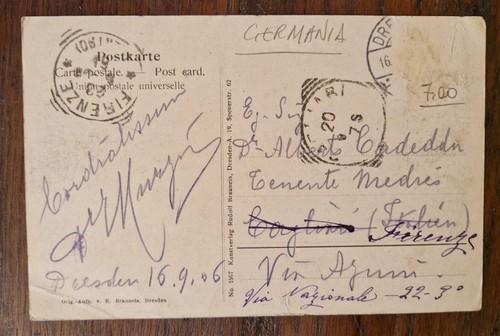 GERMANIA
Postkarte
Carte postale. Post card.
Union postale universelle
FIRENZE
DRE
16.
7,00
20
9
7 S
Eg. Sig.
Dr Alberto Cadeddu
Tenente Medico
Cagliari (Italien)
Firenze
Via Azuni
Via Nazionale - 22 - 3°
Cordialissimi
Dresden 16.9.06
Orig.-Aufn. v. R. Brauneis, Dresden
No. 1967 Kunstverlag Rudolf Brauneis, Dresden-A. 19, Spenerstr. 62